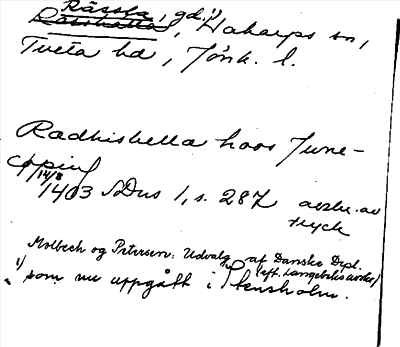 Rässla, gd.¹)
Rasshetta, Hakarps sn,
Tveta hd, Jönk. l.
Radhishella hoos June-
copiu
14/8
1403 SDns 1, s. 287 avskr. av
tryck
Molbech og Petersen: Udvalg af Danske Dipl.
(eft. Langebeks avskr.)
¹) som nu uppgått i Stensholm.